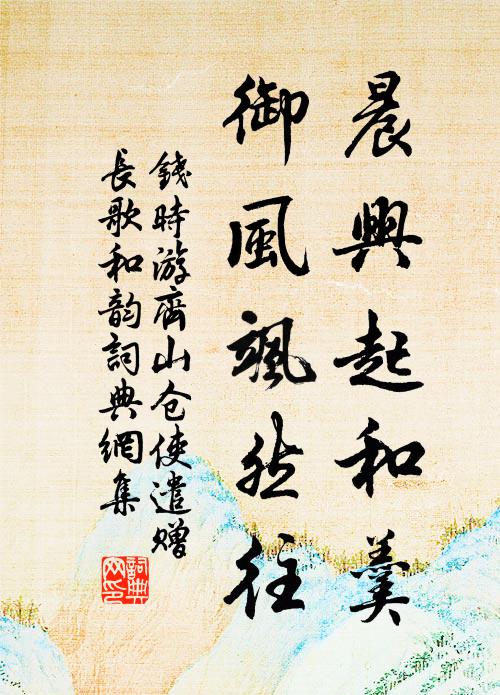 晨興起和羹
御風颯然往
錢時游齊山仓使遣赠
長歌和韵詞典網集
詞典網印